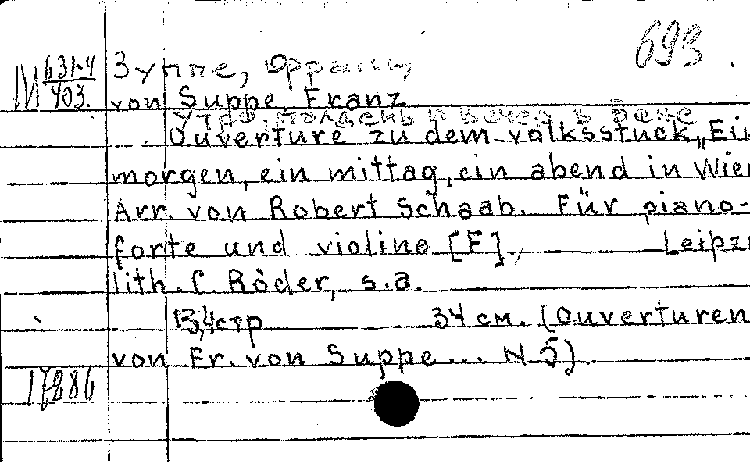 693.
М 631-4 Зуппе, Франц
403. von Suppe, Franz
Утро, полдень и вечер в Вене
Ouverture zu dem volksstück „Ein
morgen, ein mittag, ein abend in Wien
Arr. von Robert Schaab. Für piano-
forte und violine [F]. Leipz
lith. C. Röder, s.a.
13,4стр 34 см. (Ouverturen
von Fr. von Suppe... N 5)
17886